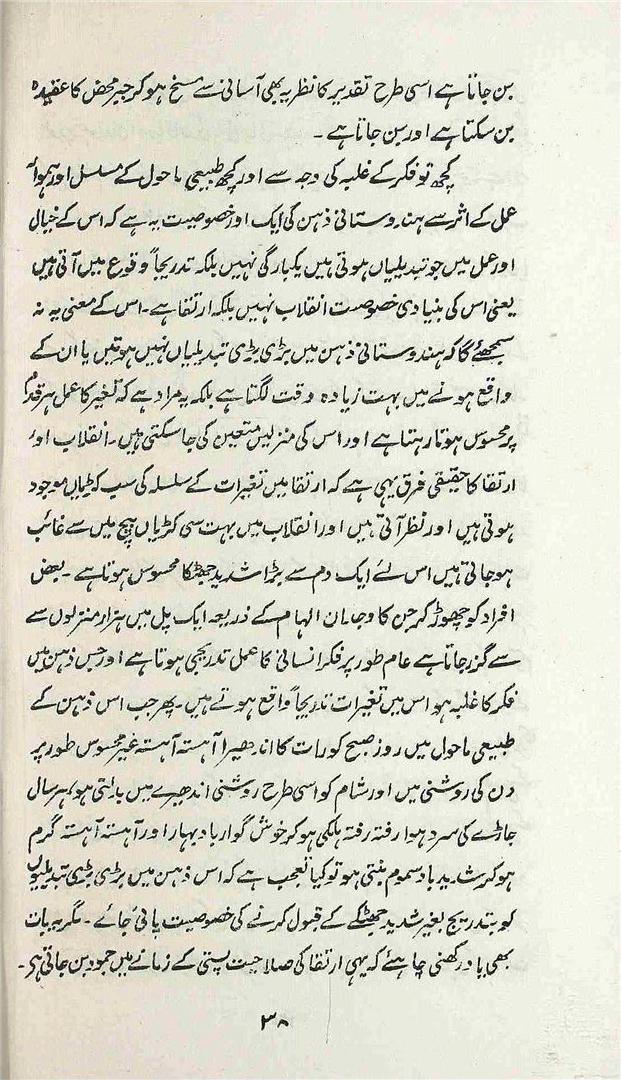 بن جاتا ہے اسی طرح تقدیر کا نظریہ بھی آسانی سے مسخ ہو کر جبر محض کا عقیدہ
بن سکتا ہے اور بن جاتا ہے ۔
کچھ تو فکر کے غلبہ کی وجہ سے اور کچھ طبیعی ماحول کے مسلسل اور ہموار
عمل کے اثر سے ہندوستانی ذہن کی ایک اور خصوصیت یہ ہے کہ اس کے خیال
اور عمل میں جو تبدیلیاں ہوتی ہیں یکبارگی نہیں بلکہ تدریجاً وقوع میں آتی ہیں
یعنی اس کی بنیادی خصوصیت انقلاب نہیں بلکہ ارتقا ہے ۔ اس کے معنی یہ نہ
سمجھئے گا کہ ہندوستانی ذہن میں بڑی بڑی تبدیلیاں نہیں ہوتیں یا ان کے
واقع ہونے میں بہت زیادہ وقت لگتا ہے بلکہ یہ مراد ہے کہ تغیر کا عمل ہر قدم
پر محسوس ہوتا رہتا ہے اور اس کی منزلیں متعین کی جا سکتی ہیں ۔ انقلاب اور
ارتقا کا حقیقی فرق یہی ہے کہ ارتقا میں تغیرات کے سلسلہ کی سب کڑیاں موجود
ہوتی ہیں اور نظر آتی ہیں اور انقلاب میں بہت سی کڑیاں بیچ میں سے غائب
ہو جاتی ہیں اس لئے ایک دم سے بڑا شدید جھٹکا محسوس ہوتا ہے ۔ بعض
افراد کو چھوڑ کر جن کا وجدان الہام کے ذریعہ ایک پل میں ہزار منزلوں سے
سے گزر جاتا ہے عام طور پر فکر انسانی کا عمل تدریجی ہوتا ہے اور جس ذہن میں
فکر کا غلبہ ہو اس میں تغیرات تدریجاً واقع ہوتے ہیں ۔ پھر جب اس ذہن کے
طبیعی ماحول میں روز صبح کو رات کا اندھیرا آہستہ آہستہ غیر محسوس طور پر
دن کی روشنی میں اور شام کو اسی طرح روشنی اندھیرے میں بدلتی ہو، ہر سال
جاڑے کی سرد ہوا رفتہ رفتہ ہلکی ہو کر خوش گوار باد بہار اور آہستہ آہستہ گرم
ہو کر شدید باد سموم بنتی ہو تو کیا تعجب ہے کہ اس ذہن میں بڑی بڑی تبدیلیوں
کو بتدریج بغیر شدید جھٹکے کے قبول کرنے کی خصوصیت پائی جائے ۔ مگر یہ بات
بھی یاد رکھنی چاہئے کہ یہی ارتقا کی صلاحیت پستی کے زمانے میں جمود بن جاتی ہی ۔
۳۸